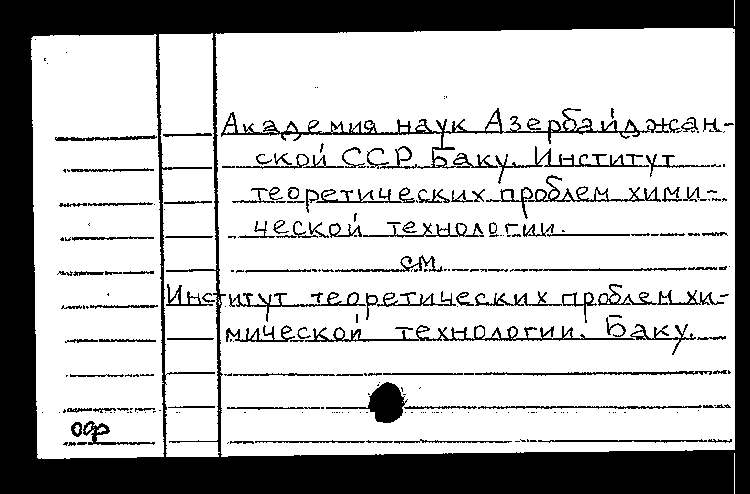 Академия наук Азербайджан-
ской ССР. Баку. Институт
теоретических проблем хими-
ческой технологии.
см.
Институт теоретических проблем хи-
мической технологии. Баку.